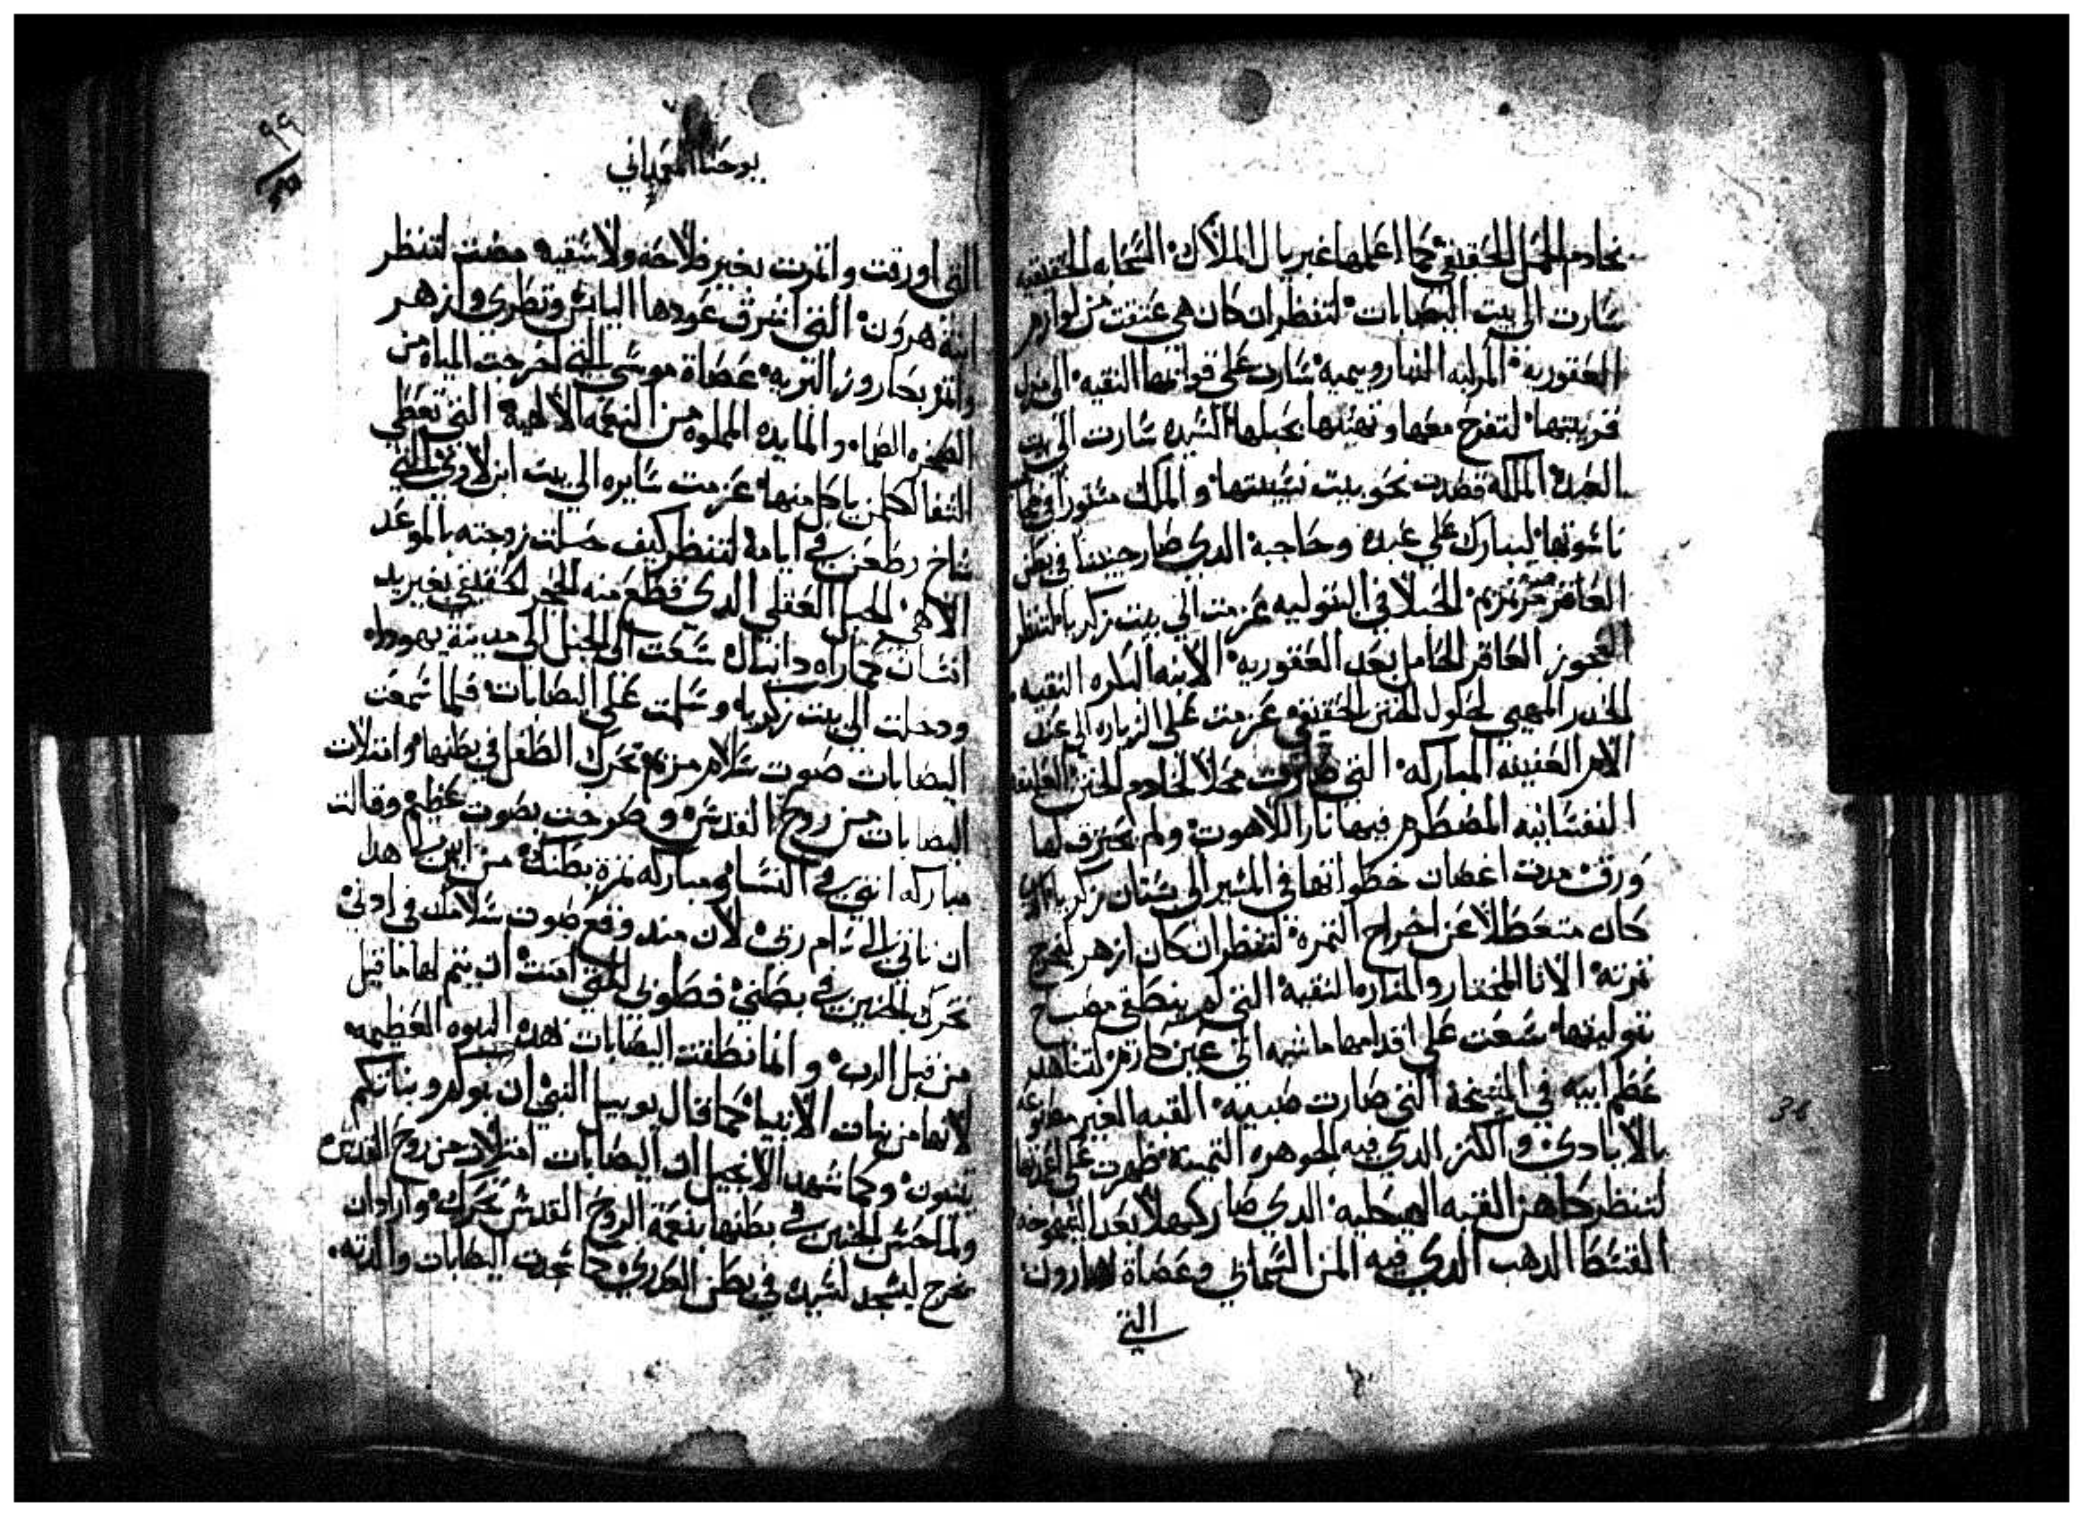 بخادم الحمل الحقيقي كما اعلمها غبريال الملاك السحابه الحقيقيه
سارت الى بيت اليصابات لتنظر ان كان هي عتقت من لوازم
العقوريه المركبه الشاروبيميه سارت على قوايمها النقيه الى منزل
قريبتها لتفرح معها وتهنيها بحبلها السيده سارت الى بيت
العبده الملكه قصدت نحو بيت نسيبتها والملك مستورا في
ناسوتها ليبارك على عبده وحاجبه الدي صار جنينا في بطن
العاقر مريم الحبلا في البتوليه عزمت الى بيت زكريا لتنظر
العجوز العاقر الحامل بعد العقوريه الابنه البكره النقيه
الخدر المهيى لحلول الختن الحقيقي عزمت على الزياره الى عند
الام العفيفه المباركه التي صارت محلا لخادم الختن العليقه
النفسانيه المضطرم فيها نار اللاهوت ولم يحترق لها
ورق مدت اغصان خطواتها في المسير الى بستان زكريا الدي
كان متعطلا عن اخراج الثمره لتنظر ان كان ازهر ليخرج
ثمرته الانا المختار والمناره النقيه التي لم ينطفي مصباح
بتوليتها سعت على اقدامها ماشيه الى عين كارم لتشاهد
عظم ابيه في الشيخه التي صارت صبيه القبه الغير مصنوعه
بالايادي والكنز الدي فيه الجوهره التمينه ظهرت على
لتنظر كاهن القبه الهيكليه الدي صار كهلا بعد الشيخوخه
القسط الدهب الدي فيه المن السماني وعصاة هارون
التي
٩٩
يوحنا المعمداني
التي اورقت واتمرت بغير فلاحه ولا سقيه مضت لتنظر
ابنة هرون التي اشرق عودها اليابس وتطرى وازهر
واتمر بكاروز التربه عصاة موسى التي اخرجت المياه من
الصخره الصما والمايده المملوه من النعمه الالهيه التي تعطي
الشفا لكلمن ياكل منها عزمت سايره الى بيت ابن لاوي التي
شاخ وطعن في ايامه لتنظر كيف حبلت زوجته بالموعد
الالاهي الجبل العقلي الدي قطع منه الحجر الحقيقي بغير يد
انسان كما راه دانيال سعت الى الجبل الى مدينة يهودا
ودخلت الى بيت زكريا وسلمت على اليصابات فلما سمعت
اليصابات صوت سلام مريم تحرك الطفل في بطنها وامتلات
اليصابات من روح القدس وصرخت بصوت عظيم وقالت
مباركه انتي في النسا ومباركه ثمرة بطنك من اين لي هدا
ان تاتي الى ام ربي لان مند وقع صوت سلامك في ادني
تحرك الجنين في بطني فطوبى للتي امنت ان يتم لها ما قيل
من قبل الرب وانما نطقت اليصابات بهده النبوه العظيمه
لانها من بنات الانبيا كما قال يوييل النبي ان بنوكم وبناتكم
يتنبون وكما شهد الانجيل ان اليصابات امتلات من روح القدس
ولما حس الجنين في بطنها بنعمة الروح القدس تحرك واراد ان
يخرج ليسجد لسيده في بطن العدرى كما سجدت اليصابات والدته